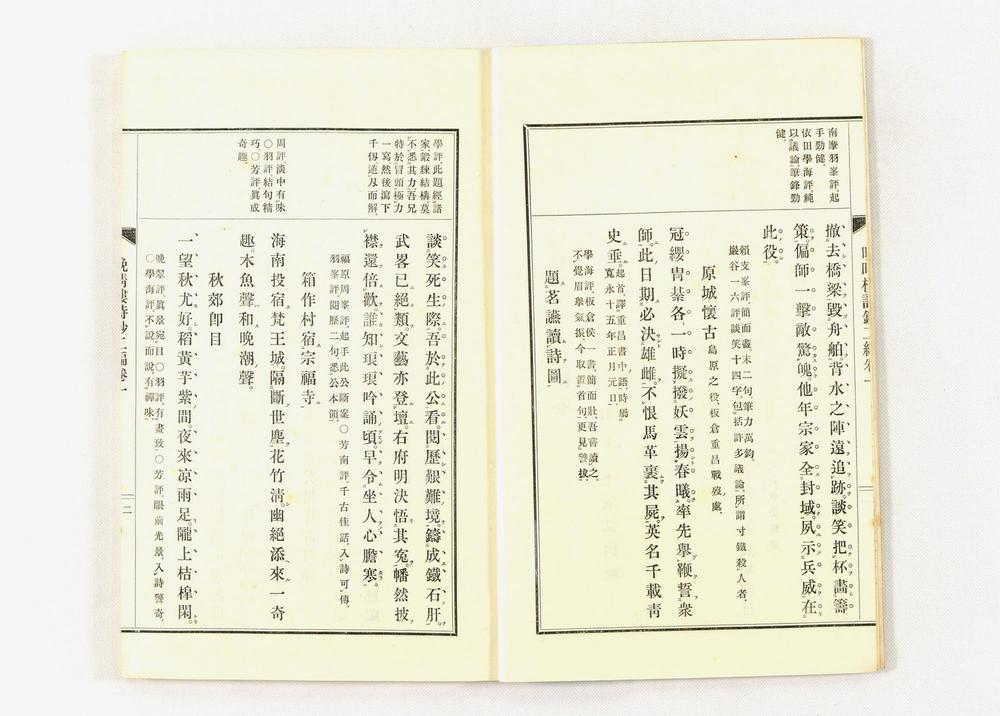 南摩羽峯評、起
手勁健、
依田學海評、純
以議論、筆鋒勁
健、
撤去橋梁毀舟舶。背水之陣遠追跡。談笑把杯畫籌
策。偏師一擊敵驚魄。他年宗家全封域。夙示兵威在
此役。
賴支峯評、簡面盡末二句、筆力萬鈞、
巖谷一六評、談笑十四字、包括許多議論、所謂寸鐵殺人者、
原城懷古 島原之役、板倉重昌戰歿處、
冠纓冑綦各一時。擬撥妖雲揚春曦。率先擧鞭誓衆
師。此日期必決雄雌。不恨馬革裹其屍。英名千載靑
史垂。起首、譯重昌書中語、時屬
寬永十五年正月元日、
學海評、板倉侯一書、簡而壯、吾嘗讀之、
不覺眉擧氣振、今取置首句、更見警拔、
題茗讌讀詩圖
學評、此題經諸
家鍛練結構、莫
不悉其力、吾兄
特於冒頭極力
一寫、然後瀉下
千仭、遒刄而解、
周評、淡中有味
〇羽評、結句精
巧〇芳評、眞成
奇趣、
談笑死生際。吾於此公看。閱歷艱難境。鑄成鐵石肝。
武畧已絕類。文藝亦登壇。右府明決悟其寃。幡然披
襟還倍歡。誰知琅琅吟誦頃。早令坐人心膽寒。
福原周峯評、起手此公斷案、〇芳南評、千古佳話、入詩可傳、
羽峯評、閱歷二句、悉公本領、
箱作村宿宗福寺
海南投宿梵王城。隔斷世塵花竹淸。幽絕添來一奇
趣。木魚聲和晚潮聲。
秋郊卽目
一望秋尤好。稻黃芋紫間。夜來凉雨足。隴上桔槹閑。
晚翠評、眞景宛目、〇羽評、有畫致、〇芳評、眼前光景、入詩警奇、
〇學海評、不說而說、有禪味、
晚晴樓詩鈔二編卷一
二